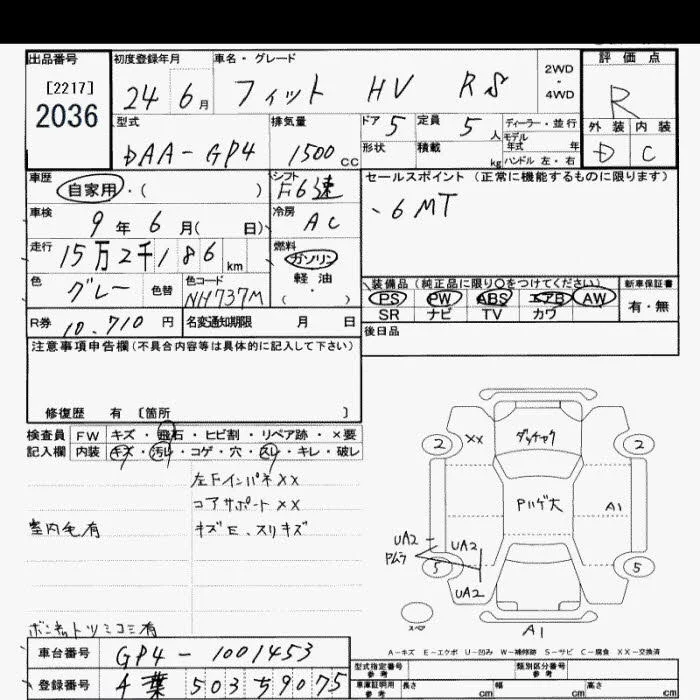 出品番号 初度登録年月 車名・グレード 2WD・4WD 評価点
[2217]
2036
24 6月 フィット HV RS R
型式 排気量 ドア 5 定員 5人 ディーラー・並行 外装 内装
DAA-GP4 1500cc 形状 積載 kg モデル年式 年 ハンドル 左・右 D C
車歴 シフト セールスポイント (正常に機能するものに限ります)
自家用・( ) F6速 、6MT
車検 冷房
9年 6月( 日) AC
走行 燃料
15万2千186km ガソリン
軽油
・( )
色 グレー 色替 色コード NH737M
装備品 (純正品に限り○をつけてください) 新車保証書
PS PW ABS エアB AW 有・無
SR ナビ TV カワ
R券 10.710円 名変通知期限 月 日 後日品
注意事項申告欄(不具合内容等は具体的に記入して下さい)
修復歴 有 [箇所 ]
検査員 FW キズ・飛石・ヒビ割・リペア跡・×要
記入欄 内装 キズ・汚レ・コゲ・穴・スレ・キレ・破レ
左Fインパネ××
コアサポート××
室内毛有 キズE、スリキズ
ボンネットツミコミ有
2 ×× ダッチャク 2
Pハゲ大 A1
UA2 UA2
Pムラ
5 5
UA2
スペア A1
A-キズ E-エクボ U-凹み W-補修跡 S-サビ C-腐食 XX-交換済
車台番号 GP4-1001453
登録番号 千葉 503 ち 9075
型式指定番号 参考 類別区分番号 参考
車庫証明用 参考 長さ cm 幅 cm 高さ cm